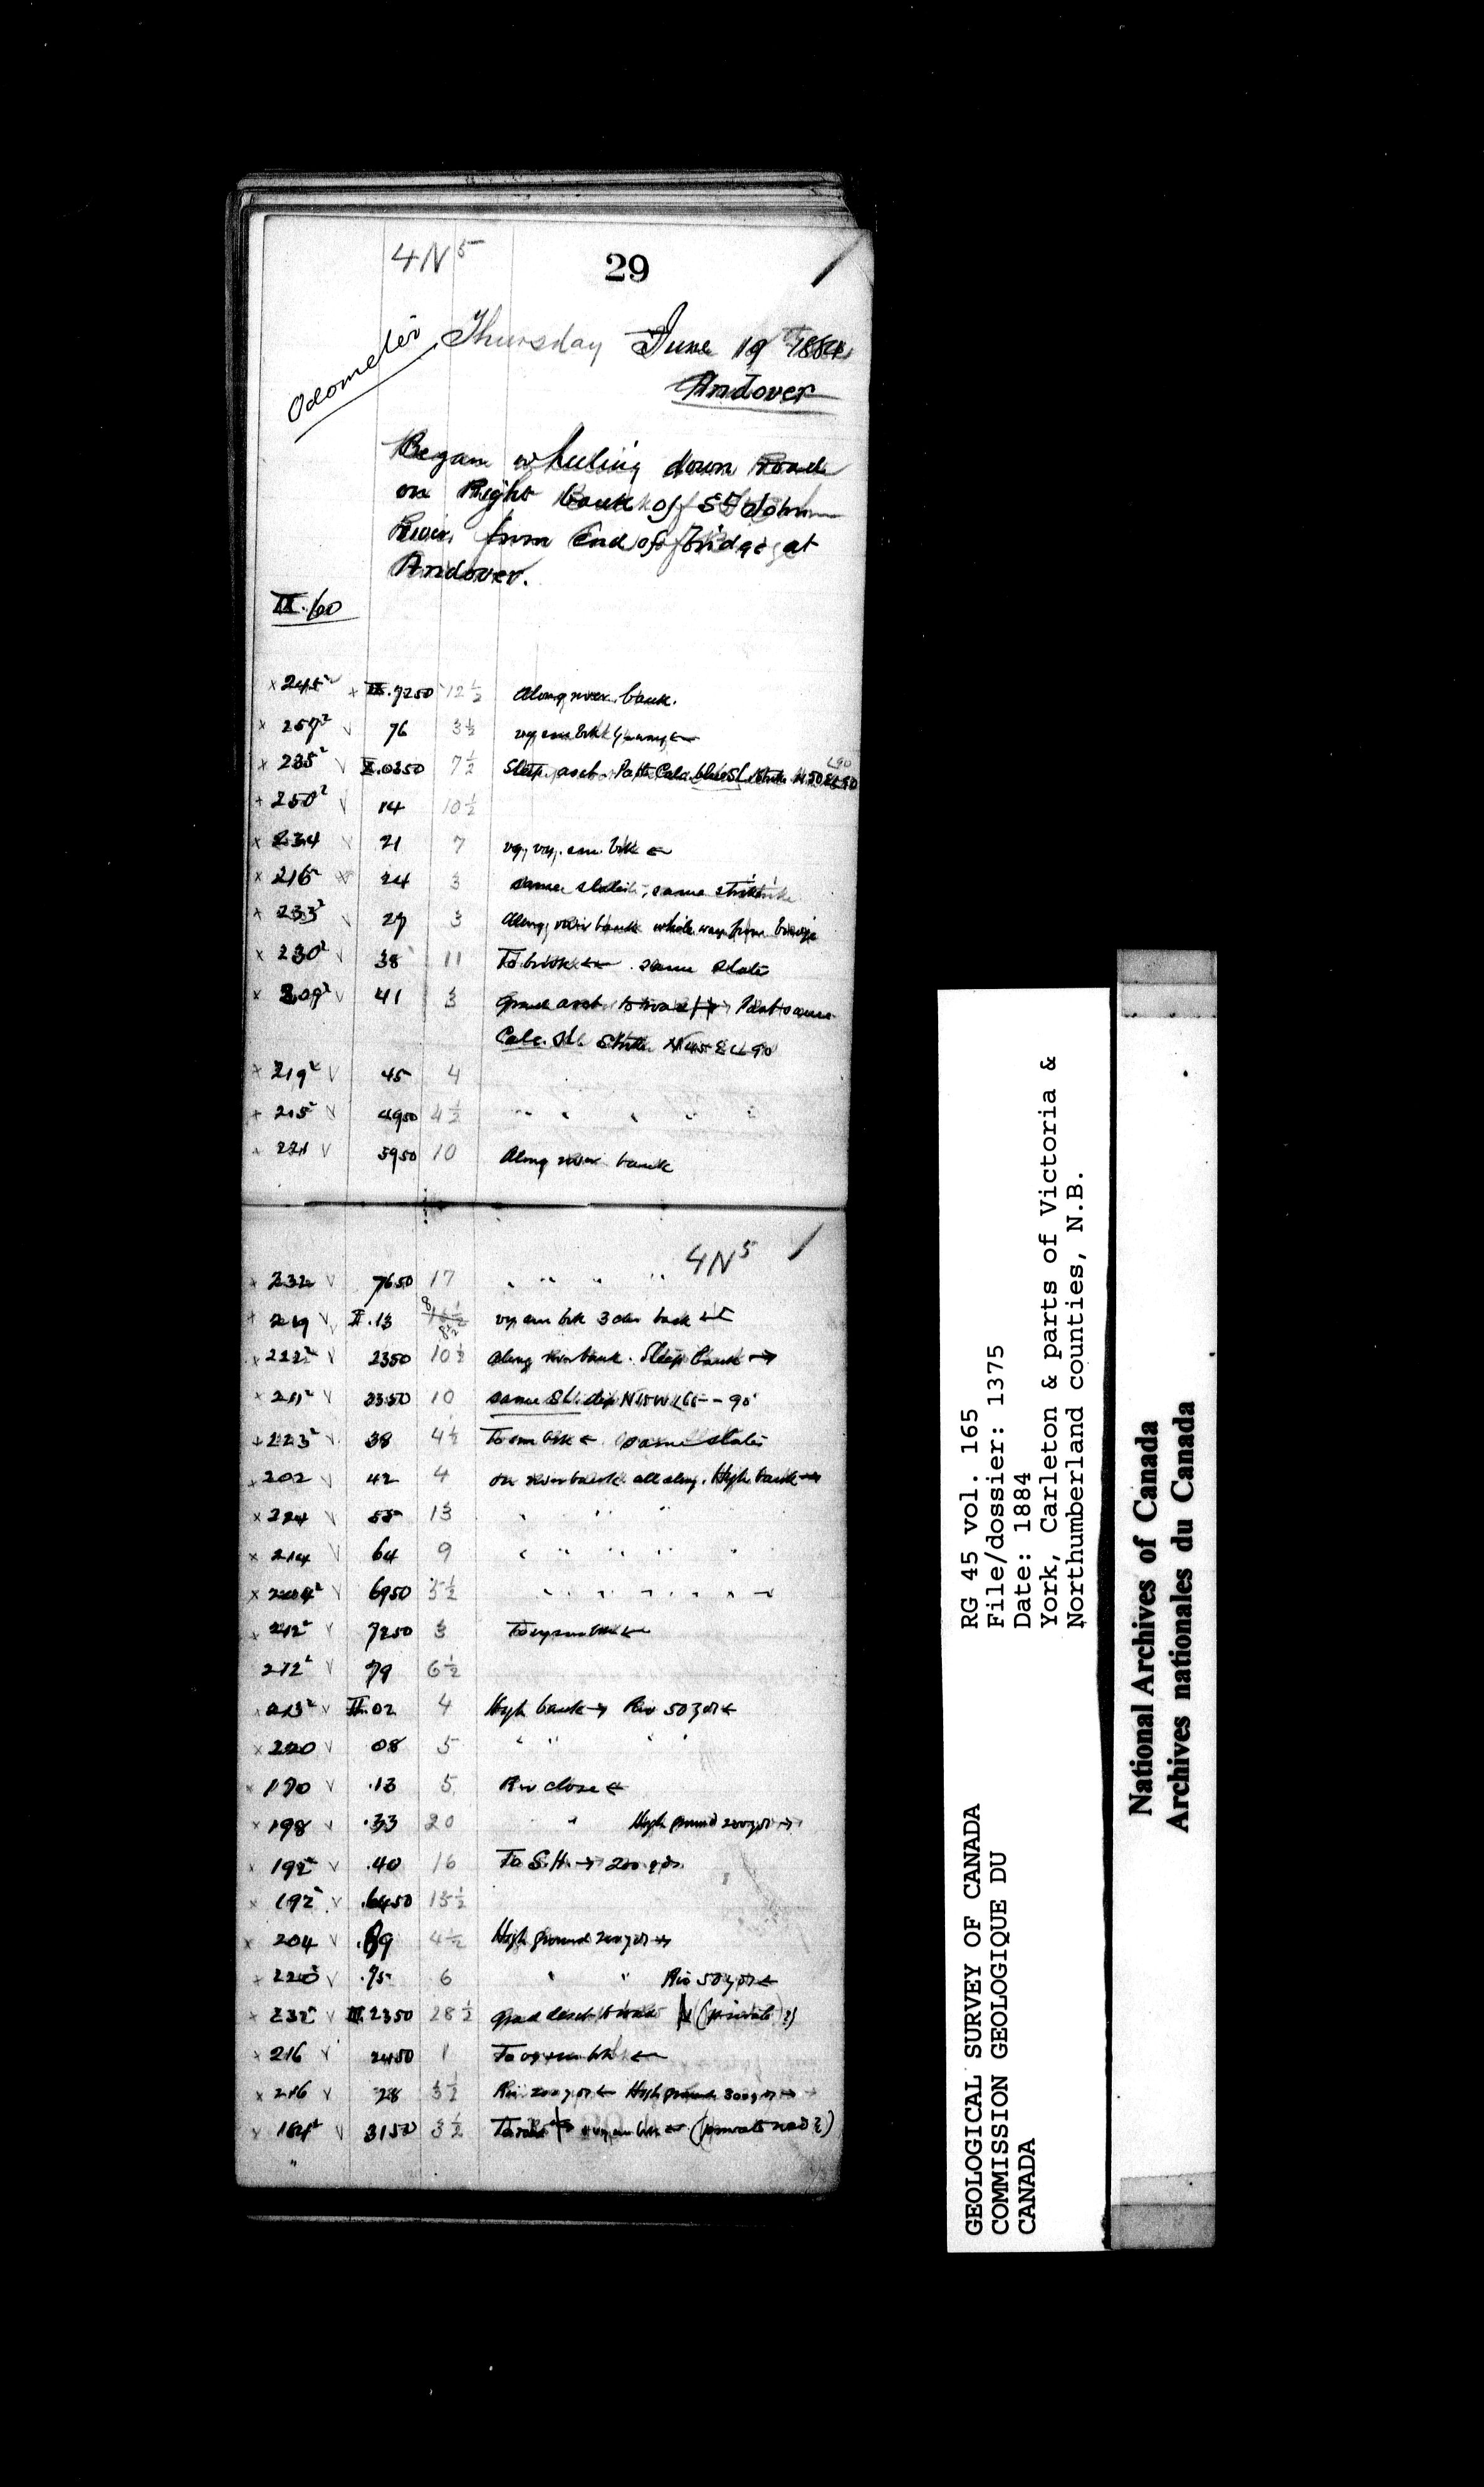 4N5
29
Odometer
Thursday June 19th 1884
Andover
Began wheeling down Road
on Right bank of St John
River from End of Bridge at
Andover.
IX.60
x 245² x IX.7250 12½ Along river bank.
x 257² v 76 3½ vy sm brk ←
x 235² v X.0350 7½ Steep asct. Calc. Slate strike N50E<90
<90
+ 250² v 14 10½
x 234 v 21 7 vy, vy, sm. brk ←
x 216² 24 3 same slate, same strike
x 233² v 27 3 Along river bank whole way from bridge
x 230² v 38 11 To brook ← same slate
x 209² v 41 3 Grad asct. to road
Calc. Sl. Strike N45E<90
x 219² v 45 4
+ 215² v 4950 4½ " " " " "
221 v 5950 10 Along river bank
4N5
x 232 v 7650 17 " " " "
219 v I.13 8½ vy sm brk 3 chs back
x 222² v 2350 10½ Along river bank. Steep bank →
x 211² v 3350 10 same Sl. dip N15W<65-90°
+ 223² v 38 4½ To sm brk ← same slate
x 202 v 42 4 on river bank all along. High bank →
x 224 v 55 13 " " " "
x 214 v 64 9 " " " " " "
x 204² v 6950 5½ " " " " " " "
x 212² v 7250 3 To vy sm brk ←
212² v 79 6½
213² v II.02 4 High bank → Riv 50 yds ←
x 220 v 08 5 " " " "
x 170 v .13 5 Riv close ←
x 198 v .33 20 " High ground 200 yds →
x 192² v .40 16 To S.H. → 200 yds.
x 192² v .6450 15½
x 204 v .69 4½ High ground 200 yds →
+ 220² v .75 6 " " Riv 50 yds ←
x 232² v III.2350 28½ Grad desct to road (private?)
x 216 v 2450 1 To vy sm brk ←
x 216 v 28 3½ Riv 200 yds ← High ground 300 yds →
x 164² v 3150 3½ To road vy sm brk ← (private road?)
"
GEOLOGICAL SURVEY OF CANADA
COMMISSION GEOLOGIQUE DU
CANADA
RG 45 vol. 165
File/dossier: 1375
Date: 1884
York, Carleton & parts of Victoria &
Northumberland counties, N.B.
National Archives of Canada
Archives nationales du Canada